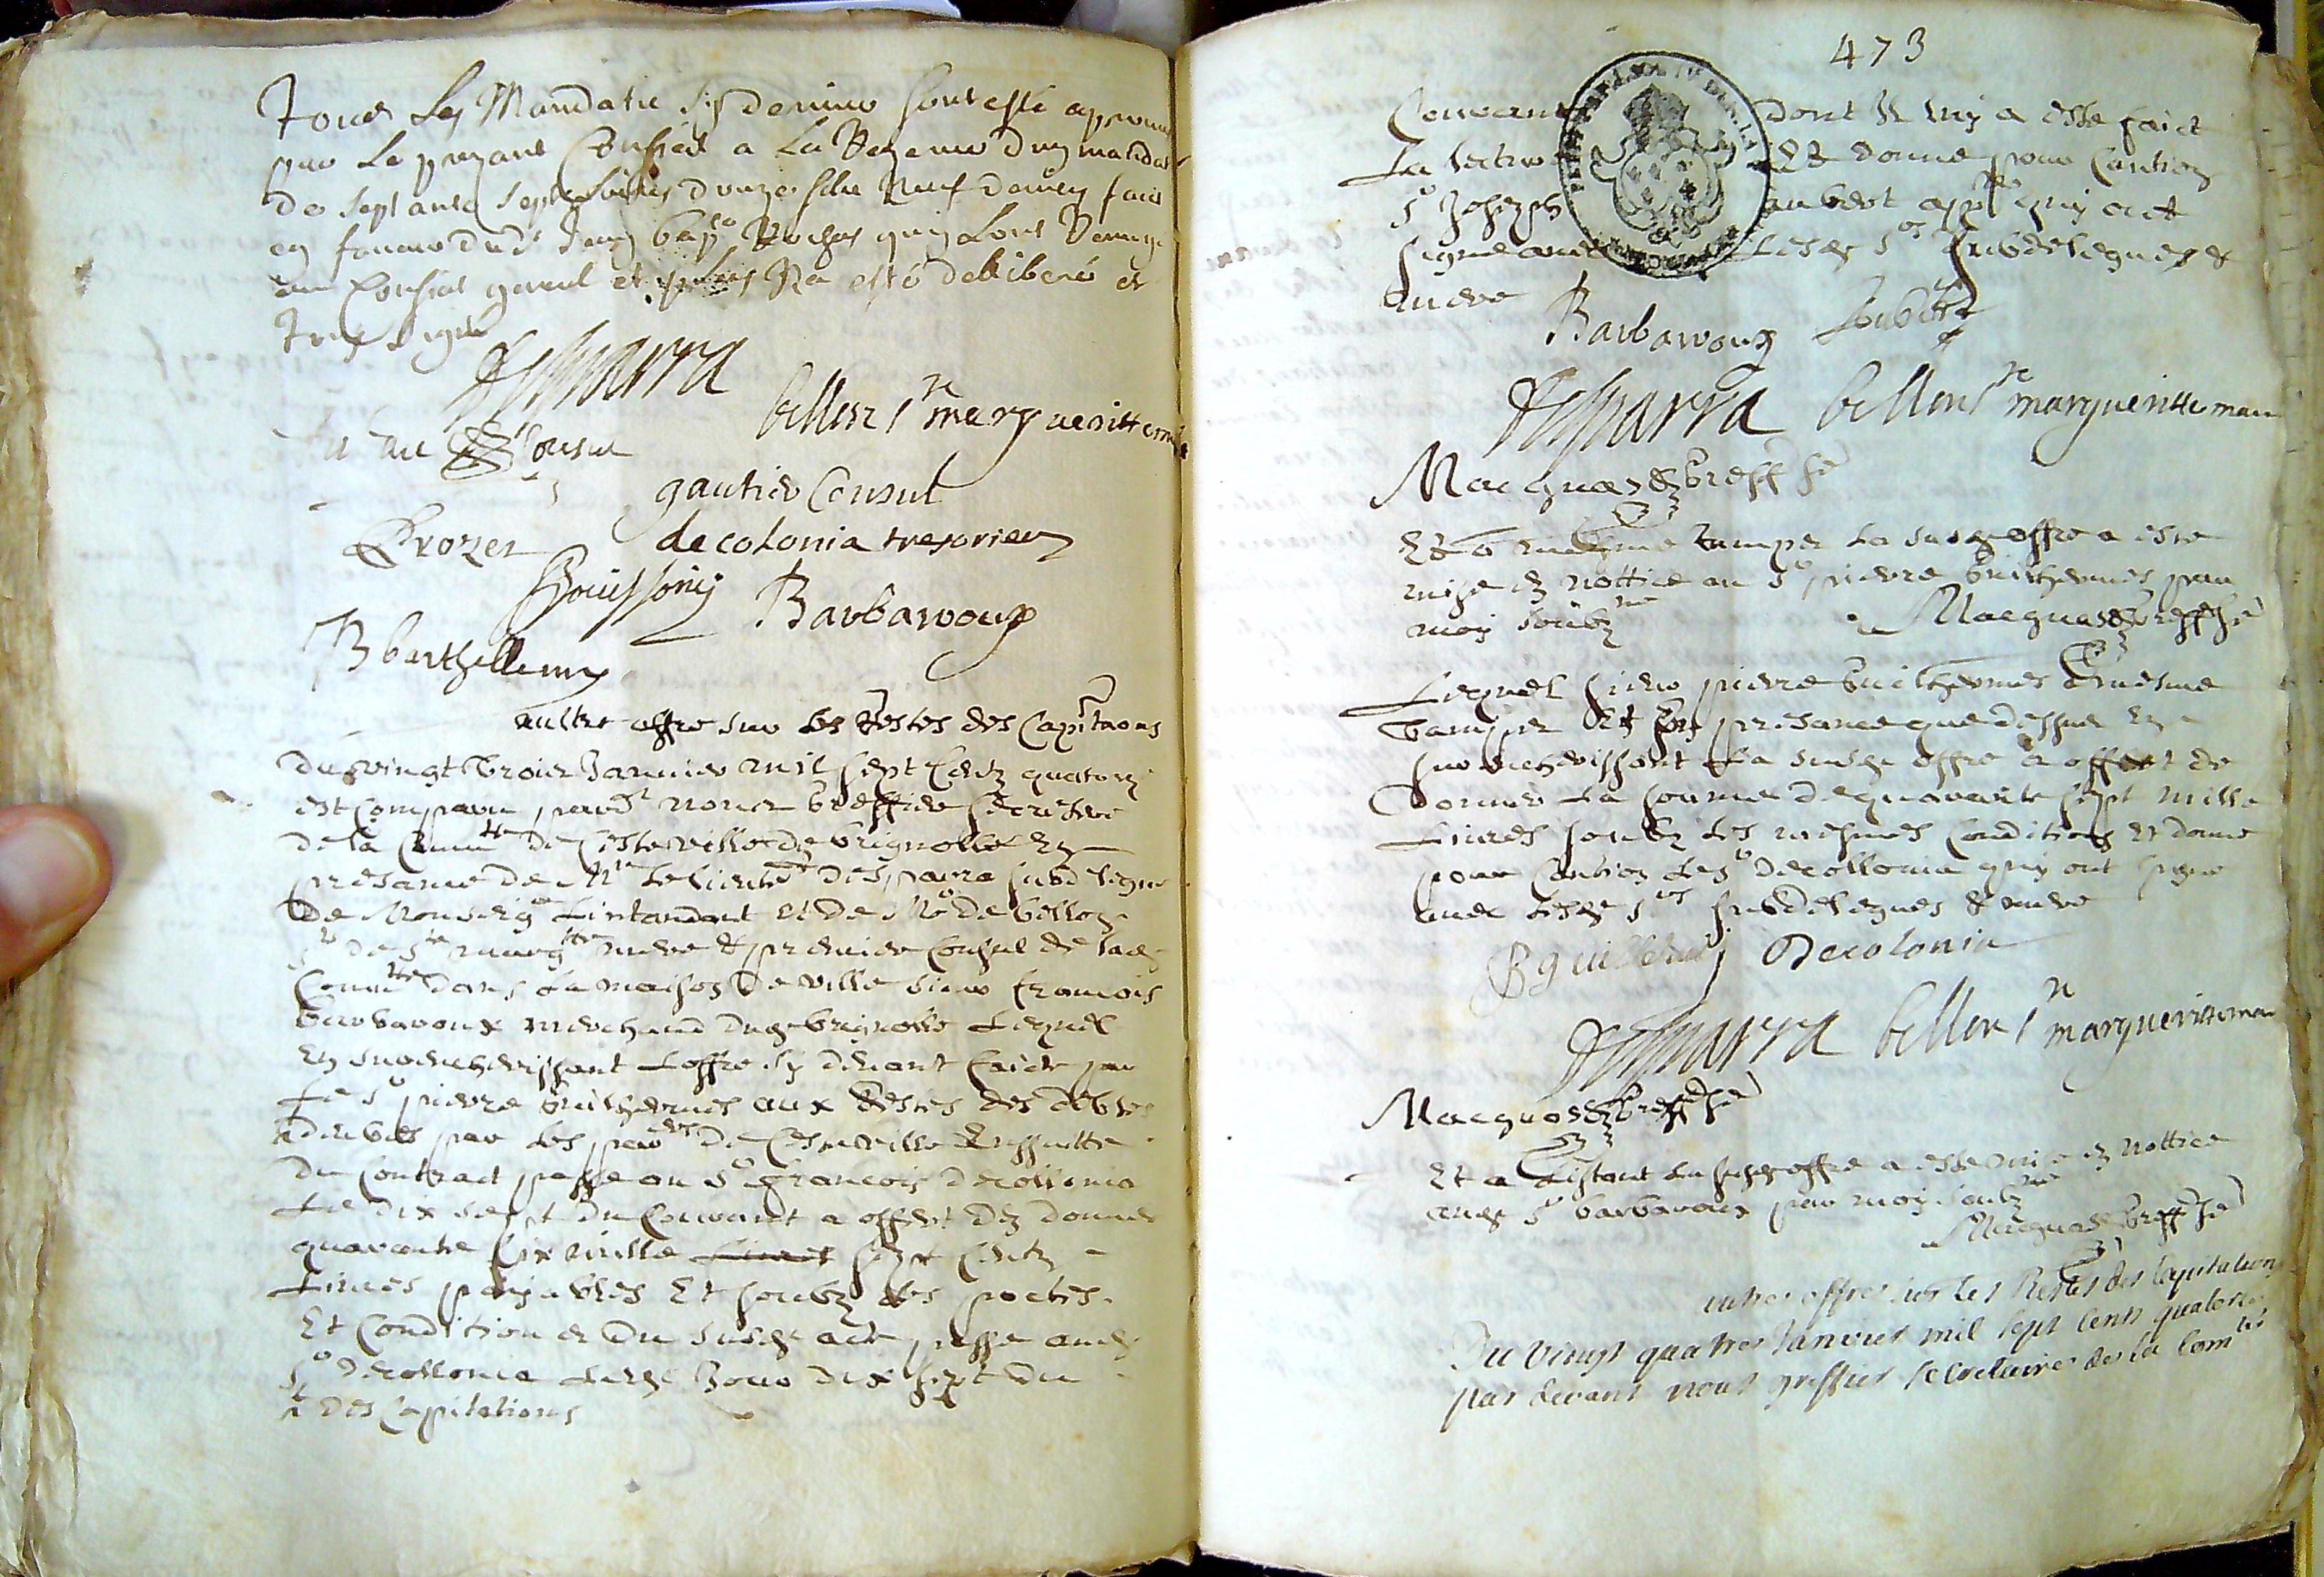 Tous les Mandatz sy devant sont esté approuvés
par le present Conseil a La Reserve d'un mandat
de septante sept livres douze sols neuf deniers fait
en faveur dud sr Jean bapte Rochas quy sont Renvoyé
au Conseil general et plus Na esté deliberé et
desparra
bellon ste margueritte maire
Consul
gautier Consul
Crozet
decolonia tresorier
Bouissony Barbaroux
B barthellemy
aultre offre sur les Restes des Capitaons
du vingt trois Janvier mil sept Centz quatorze
est Comparu pard^t nous Greffier secretere
de la Commu^te de Ceste ville de brignolle En
presance de M^re desparra subdelegue
de Monseig^r Lintandant et de M^re de bellon
s^r de s^te marg^tte maire & premier Consul de lade
Commu^te dans la maison de ville sieur francois
barbaroux merchand dud brignolle Lequel
En surencherissant Loffre sy devant faicte par
Le s^r pierre Guilhermes aux Restes des debtes
deubes par les par^ers de Ceste ville Ensuitte
du Contract passé au s^r francois decollonia
Le dix sept du Courant a offert de donner
quarante six mille livres sept Centz
Livres payables Et soubz les pactes
Et Conditions du susd acte passé aud
s^r decollonia Led Jour dix sept du
des Capitations
473
Courant dont Il luy a esté faict
La lecture Et donné pour Caution
s^r Joseph aubert app^re quy ont
signé avec Lesd s^rs subdelegués &
maire
Barbaroux aubert
desparra bellon s^te margueritte maire
Maquas Greff se
Et a mesme temps la susd offre a esté
mise en nottice au s^r pierre Guilhermes par
moy soubz^ne
Maquas Greff se
Lequel sieur pierre Guilhermes a mesme
temps Et En presance que dessus En
surencherissant La susd offre a offert de
donner La somme de quarante sept mille
Livres soubz les mesmes Conditions Et donné
pour Caution Le s^r decollonia quy ont signé
avec Lesd s^rs subdelegués & maire
Decolonia
desparra bellon s^te margueritte maire
Maquas Greff se
Et a Listant la susd offre a esté mise en nottice
aud s^r barbaroux par moy soubz^ne
Maquas Greff se
autre offre sur les Restes des Capitations
Du vingt quatre Janvier mil sept cents quatorze
par devant nous greffier secretaire de la Com^té